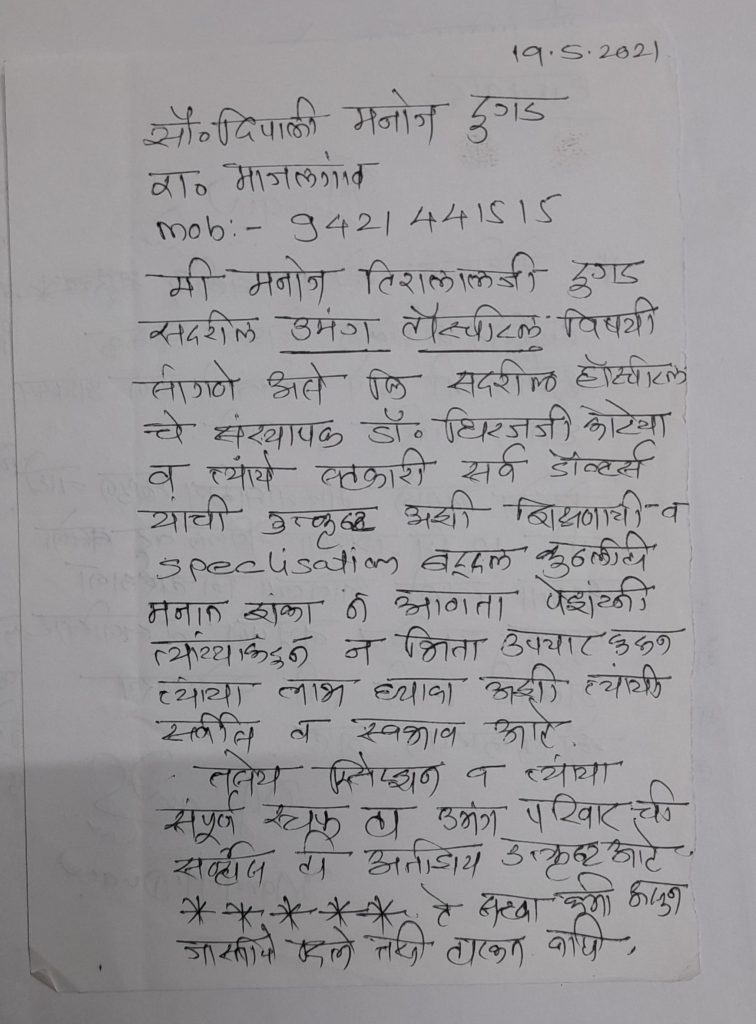 19.5.2021
सौ० दिपाली मनोज दुगड
रा० माजलगांव
mob:- 9421441515
मी मनोज हिरालालजी दुगड
सदरील उमंग हॉस्पीटल विषयी
सांगणे असे कि सदरील हॉस्पीटल
चे संस्थापक डॉ० धिरजजी कोटेचा
व त्यांचे सहकारी सर्व डॉक्टर्स
यांची उत्कृष्ट अशी शिक्षणाची व
speclisation बद्दल कुठलीही
मनात शंका न आणता पेशंटनी
त्यांच्याकडुन न भिता उपचार करुन
त्यांचा लाभ घ्यावा अशी त्यांची
सर्व्हीस व स्वभाव आहे.
तसेच रिसेप्शन व त्यांचा
संपूर्ण स्टाफ हा उमंग परिवार ची
सर्व्हीस ही अतिशय उत्कृष्ट आहे.
* * * * * हे सुध्दा कमी
जास्तीचे दिले तरी हरकत नाही.